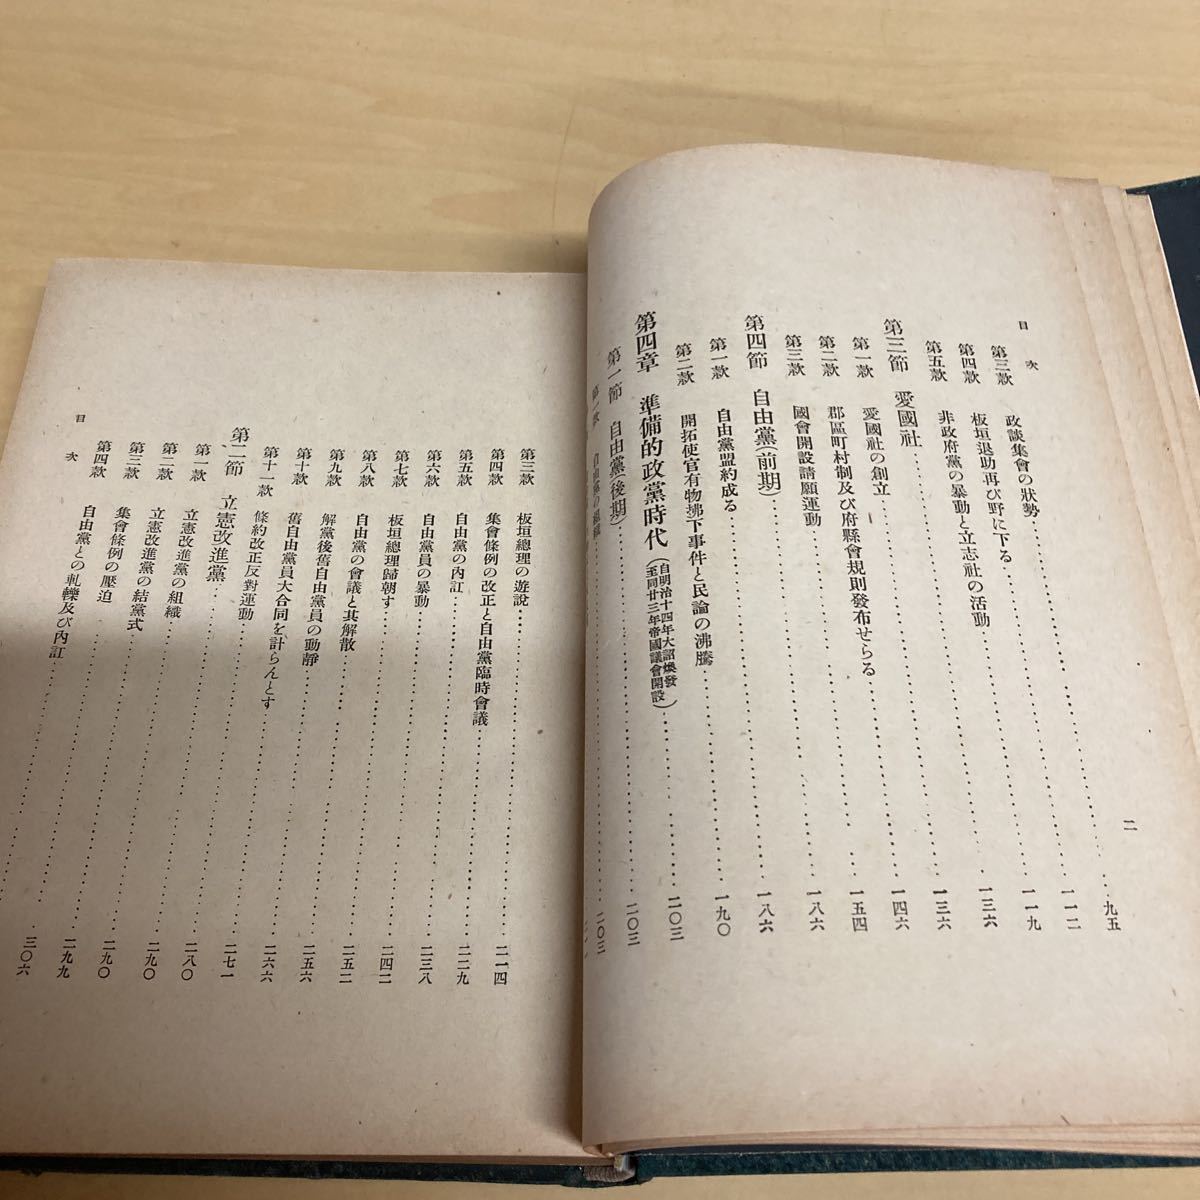 目次
二
第三款 政談集會の狀勢 九五
第四款 板垣退助再び野に下る 一一二
第五款 非政府黨の暴動と立志社の活動 一一九
第三節 愛國社 一三六
第一款 愛國社の創立 一三六
第二款 郡區町村制及び府縣會規則發布せらる 一四六
第三款 國會開設請願運動 一五四
第四節 自由黨(前期) 一八六
第一款 自由黨盟約成る 一八六
第二款 開拓使官有物拂下事件と民論の沸騰 一九〇
第四章 準備的政黨時代(自明治十四年大詔煥發至同廿三年帝國議會開設) 二〇三
第一節 自由黨(後期) 二〇三
第一款 自由黨の組織 二〇三
第三款 板垣總理の遊說 二一四
第四款 集會條例の改正と自由黨臨時會議 二二九
第五款 自由黨の內訌 二三八
第六款 自由黨員の暴動 二四二
第七款 板垣總理歸朝す 二五二
第八款 自由黨の會議と其解散 二五六
第九款 解黨後舊自由黨員の動靜 二六六
第十款 舊自由黨員大合同を計らんとす 二七一
第十一款 條約改正反對運動 二八〇
第二節 立憲改進黨 二九〇
第一款 立憲改進黨の組織 二九〇
第二款 立憲改進黨の結黨式 二九九
第三款 集會條例の壓迫 三〇六
第四款 自由黨との軋轢及び內訌
目次